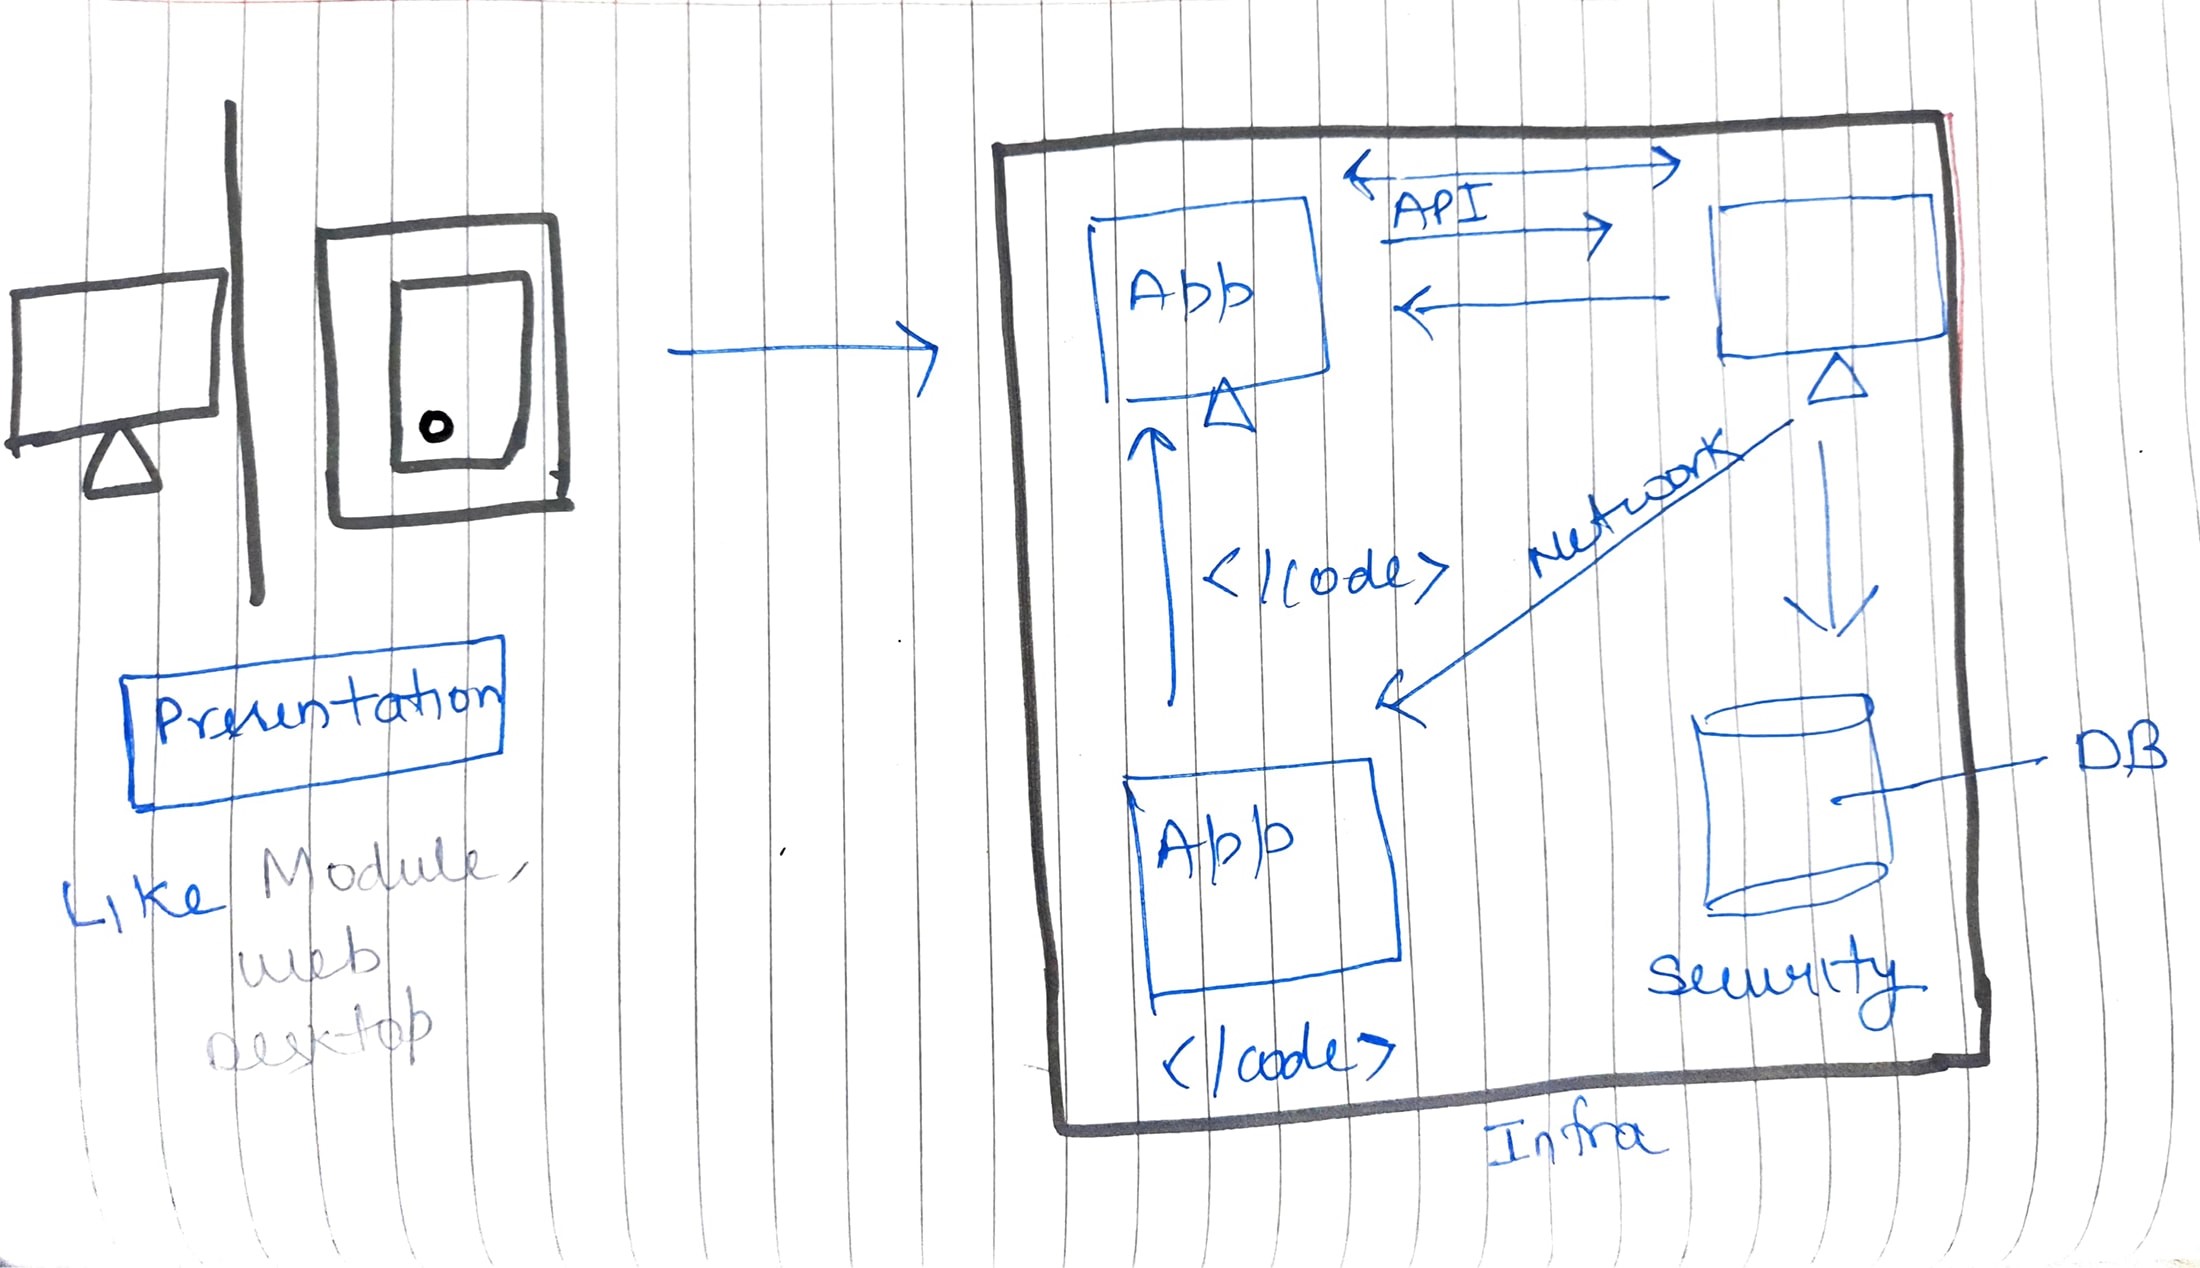 Presentation
Like Module,
web
Desktop
API
App
Network
</code>
App
DB
Security
</code>
Infra